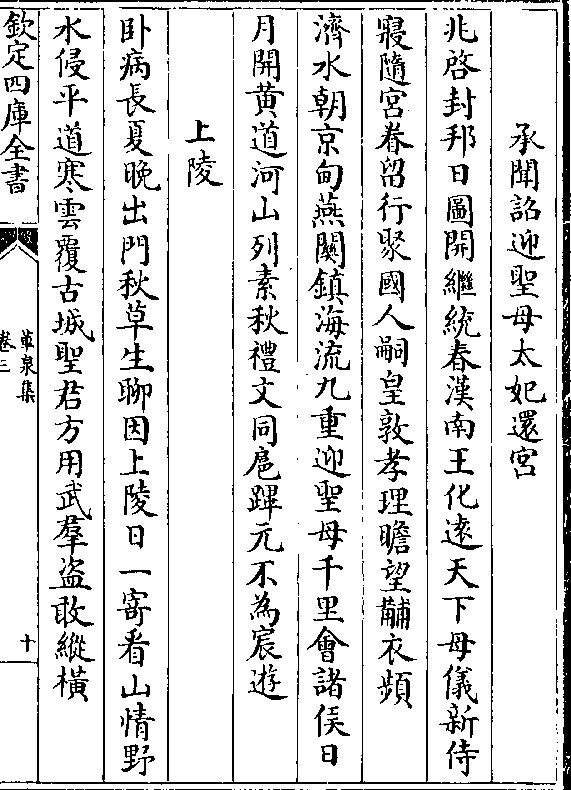 承聞詔迎聖母太妃還宮
兆啓封邦日圖開繼統春漢南王化逺天下母儀新侍
寢隨宮眷留行聚國人嗣皇敦孝理瞻望黼衣頻
濟水朝京甸燕關鎮海流九重迎聖母千里會諸侯日
月開黄道河山列素秋禮文同扈蹕元不為宸遊
上陵
卧病長夏晚出門秋草生聊因上陵日一寄看山情野
水侵平道寒雲覆古城聖君方用武羣盗敢縱橫
欽定四庫全書
泉集
卷三
十